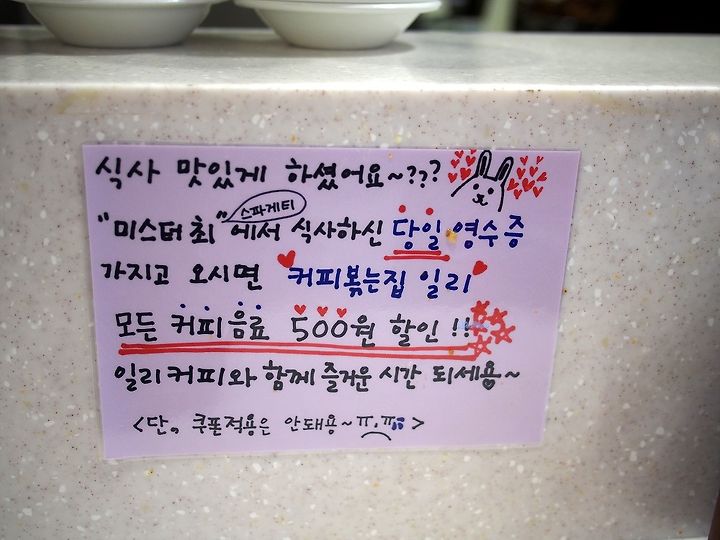 식사 맛있게 하셨어요~???
스파게티
"미스터최"에서 식사하신 당일 영수증
가지고 오시면 커피볶는집 일리
모든 커피음료 500원 할인!!
일리커피와 함께 즐거운 시간 되세용~
<단, 쿠폰적용은 안돼용~ㅠ.ㅠ>